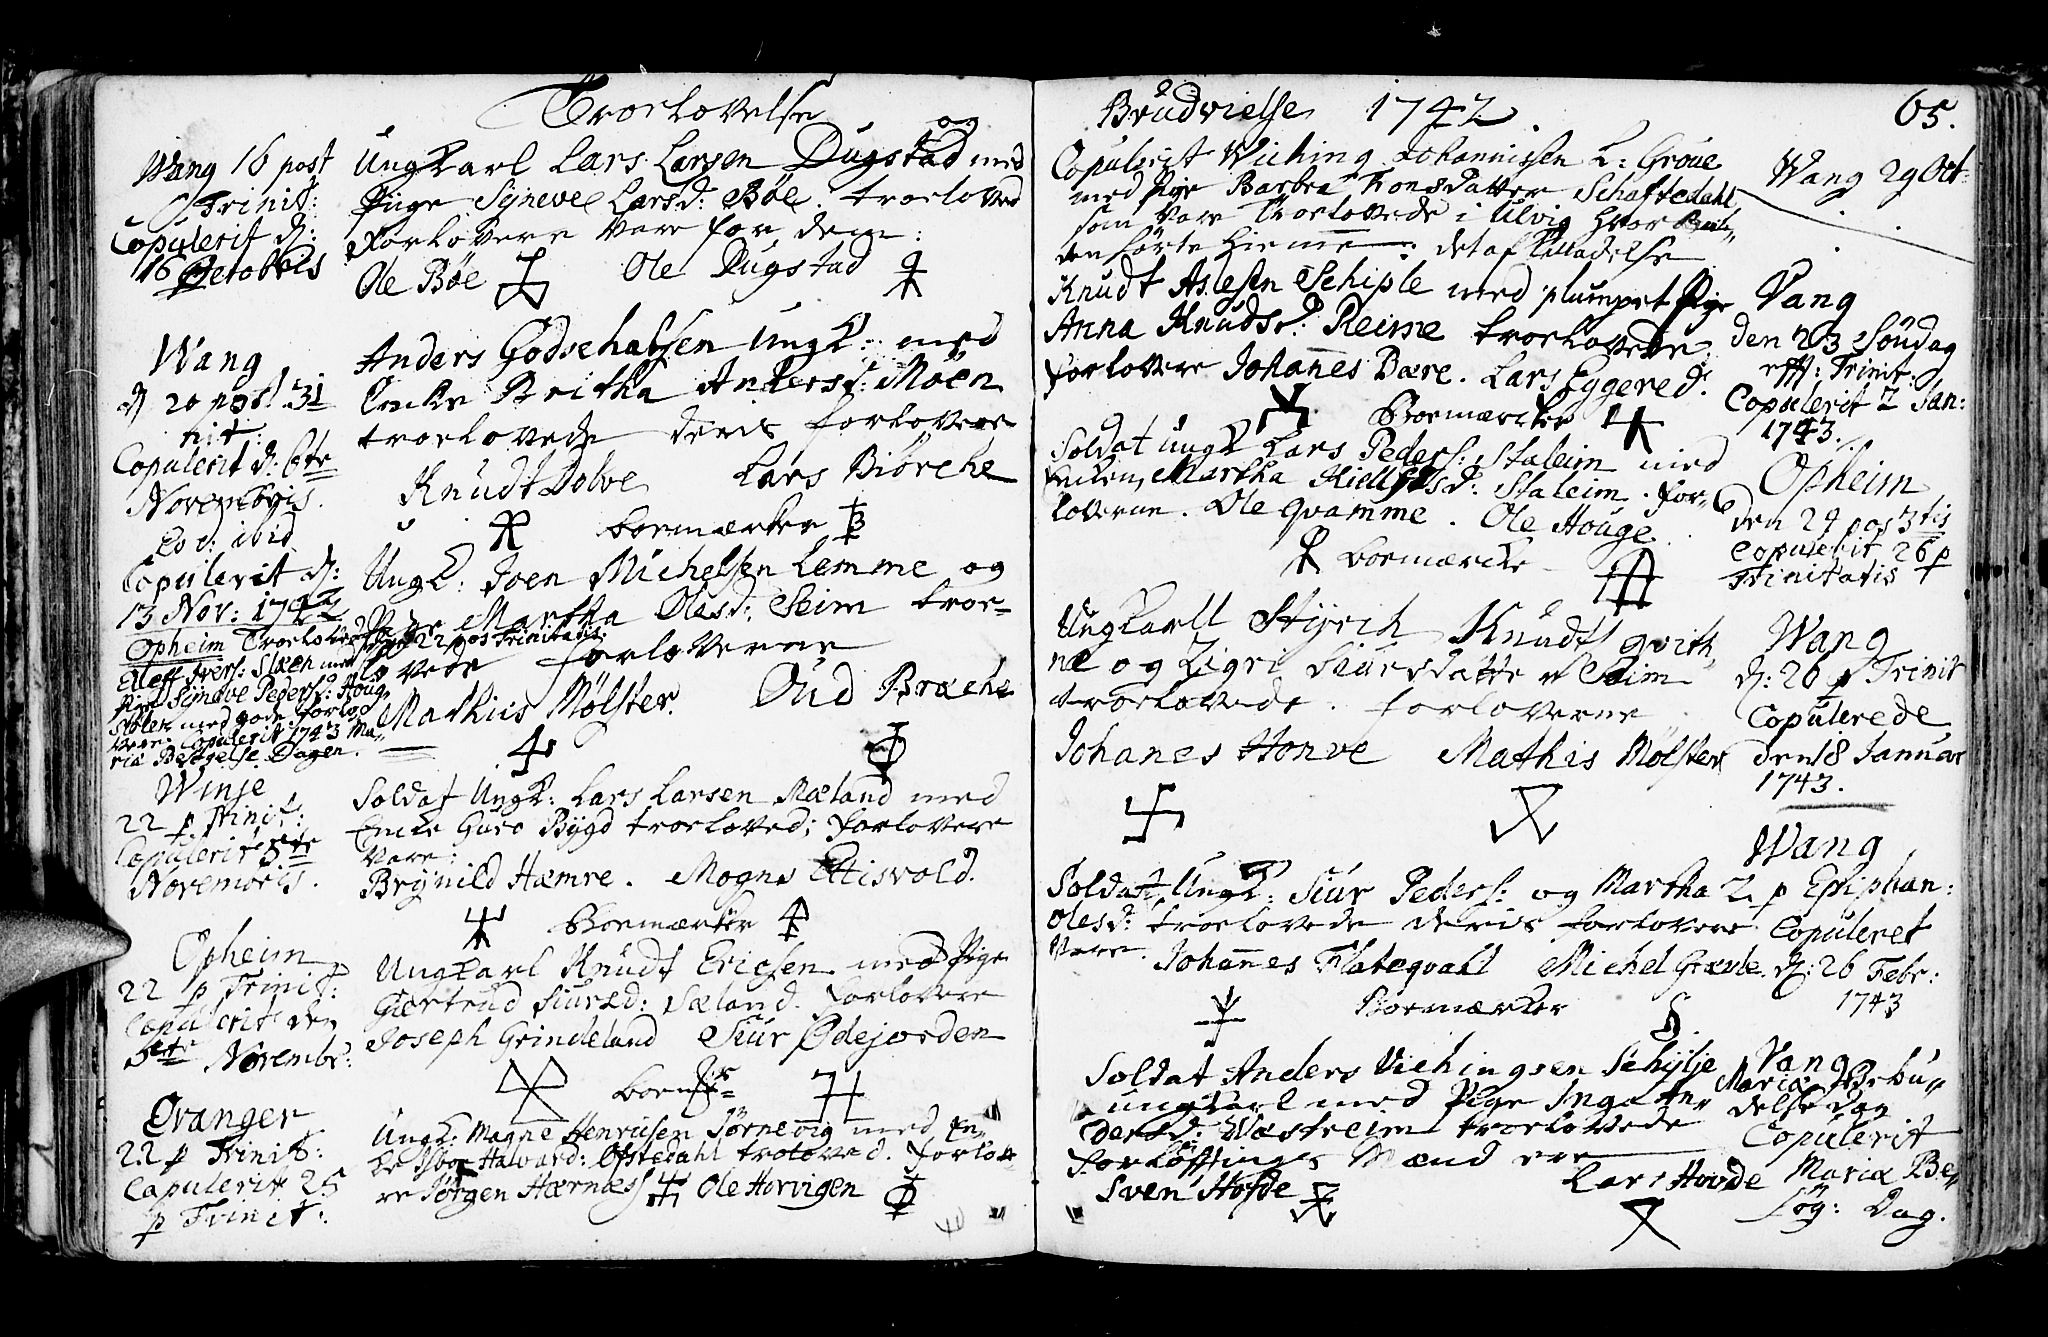 Troelovelse og
Wang 16 post
Trinit:
Copulerit d:
16 Octobris
Ungkarl Lars Larsen Dugstad med
Pige Syneve Larsd: Bøe. troeloved
Forlovere vare for dem:
Ole Bøe Ole Dugstad
Wang
d 20 post 3i
nit:
Copulerit d: 6te
Novembris.
Anders Godschalsen ungk: med
Encke Britha Andersd: Möen
troelovede deris forlovere
Knudt Dolve Lars Biörche
boemærker
Eod: ibid
Copulerit d:
13 Nov: 1742
Ungk: Joen Michelsen Lemme og
Pige Martha Olesd: Seim troe-
lovede forloverne
Mathius Mølster. Oud Brache
Opheim Troelovede 22 pos Trinitatis.
Ellef Ivers: Slæen med
Pige Syneve Peders: Houg
med gode forlo
vere. Copulerit 1743 Ma-
riæ Besøgelse Dagen.
Winje
22 p Trinit:
Copulerit 5te
Novembris.
Soldat Ungk: Lars Larsen Mæland med
Encke Guro Bÿgd troeloved; forlovere
vare:
Brÿnild Hæmre. Mogns Ettisvold.
Boemærker
Opheim
22 p Trinit:
Copulerit den
5te Novembr:
Ungkarl Knudt Ericsen med Pige
Gærtrud Siursd: Sæland. forlovere
Joseph Grindeland Siur Ødejorden
boem
Evanger
22 p Trinit:
Copulerit 25
p Trinit:
Ungk: Magne Henricsen Jörnevig med En-
ke Halvard: Ofstedahl troloved. forlov
re Jørgen Hærnæs Ole Horvigen
Brudvielse 1742. 65.
Copulerit Wiching Johannissen L: Grøue
med Pige Barbra Tronsdatter Schaftedahl
som vare Troelovede i Ulvig hvor Bru-
den hørte hieme det af tilladelse
Wang 29 Oct:
Knudt Aslesen Schiple med plumpet Pige
Anna Knudsd: Reime troelovede
forlovere Johannes Bære. Lars Eggered:
Boemærcker
Vang
den 23 Søndag
efft: Trinit:
Copulerit 2 Jan:
1743.
Soldat ungk Lars Peders: Staleim med
Encken Martha Kiellsd: Staleim. for-
loverne. Ole Qvamme. Ole Houge
boemærcke
Opheim
den 24 pos 3tis
Copulerit 26 p
Trinitatis
Ungkarll Styrch Knudts gvith
ne og Zigri Siursdatter Seim
troelovede. forloverne
Johanes Honve Mathis Mölster
Wang
d: 26 p Trinit
Copulerede
den 18 Januar
1743.
Wang
Soldat, Ungk: Siur Peders: og Martha 2 p Epiphan:
Olesd: troelovede deris forlovere Copuleret
vare. Johannes Flateqvall Michel Gierde. d: 26 Febr:
Boemærcker 1743
Soldat Anders Vichingsen Schÿlje
ungkarl med Pige Inga An-
dersd: Wæstreim troelovede
forløffnings Mænd ere
Sven Hofde Lars Hovde
Vang
Mariæ Bebu-
delse dag
Copulerit
Mariæ Be-
søg: Dag.